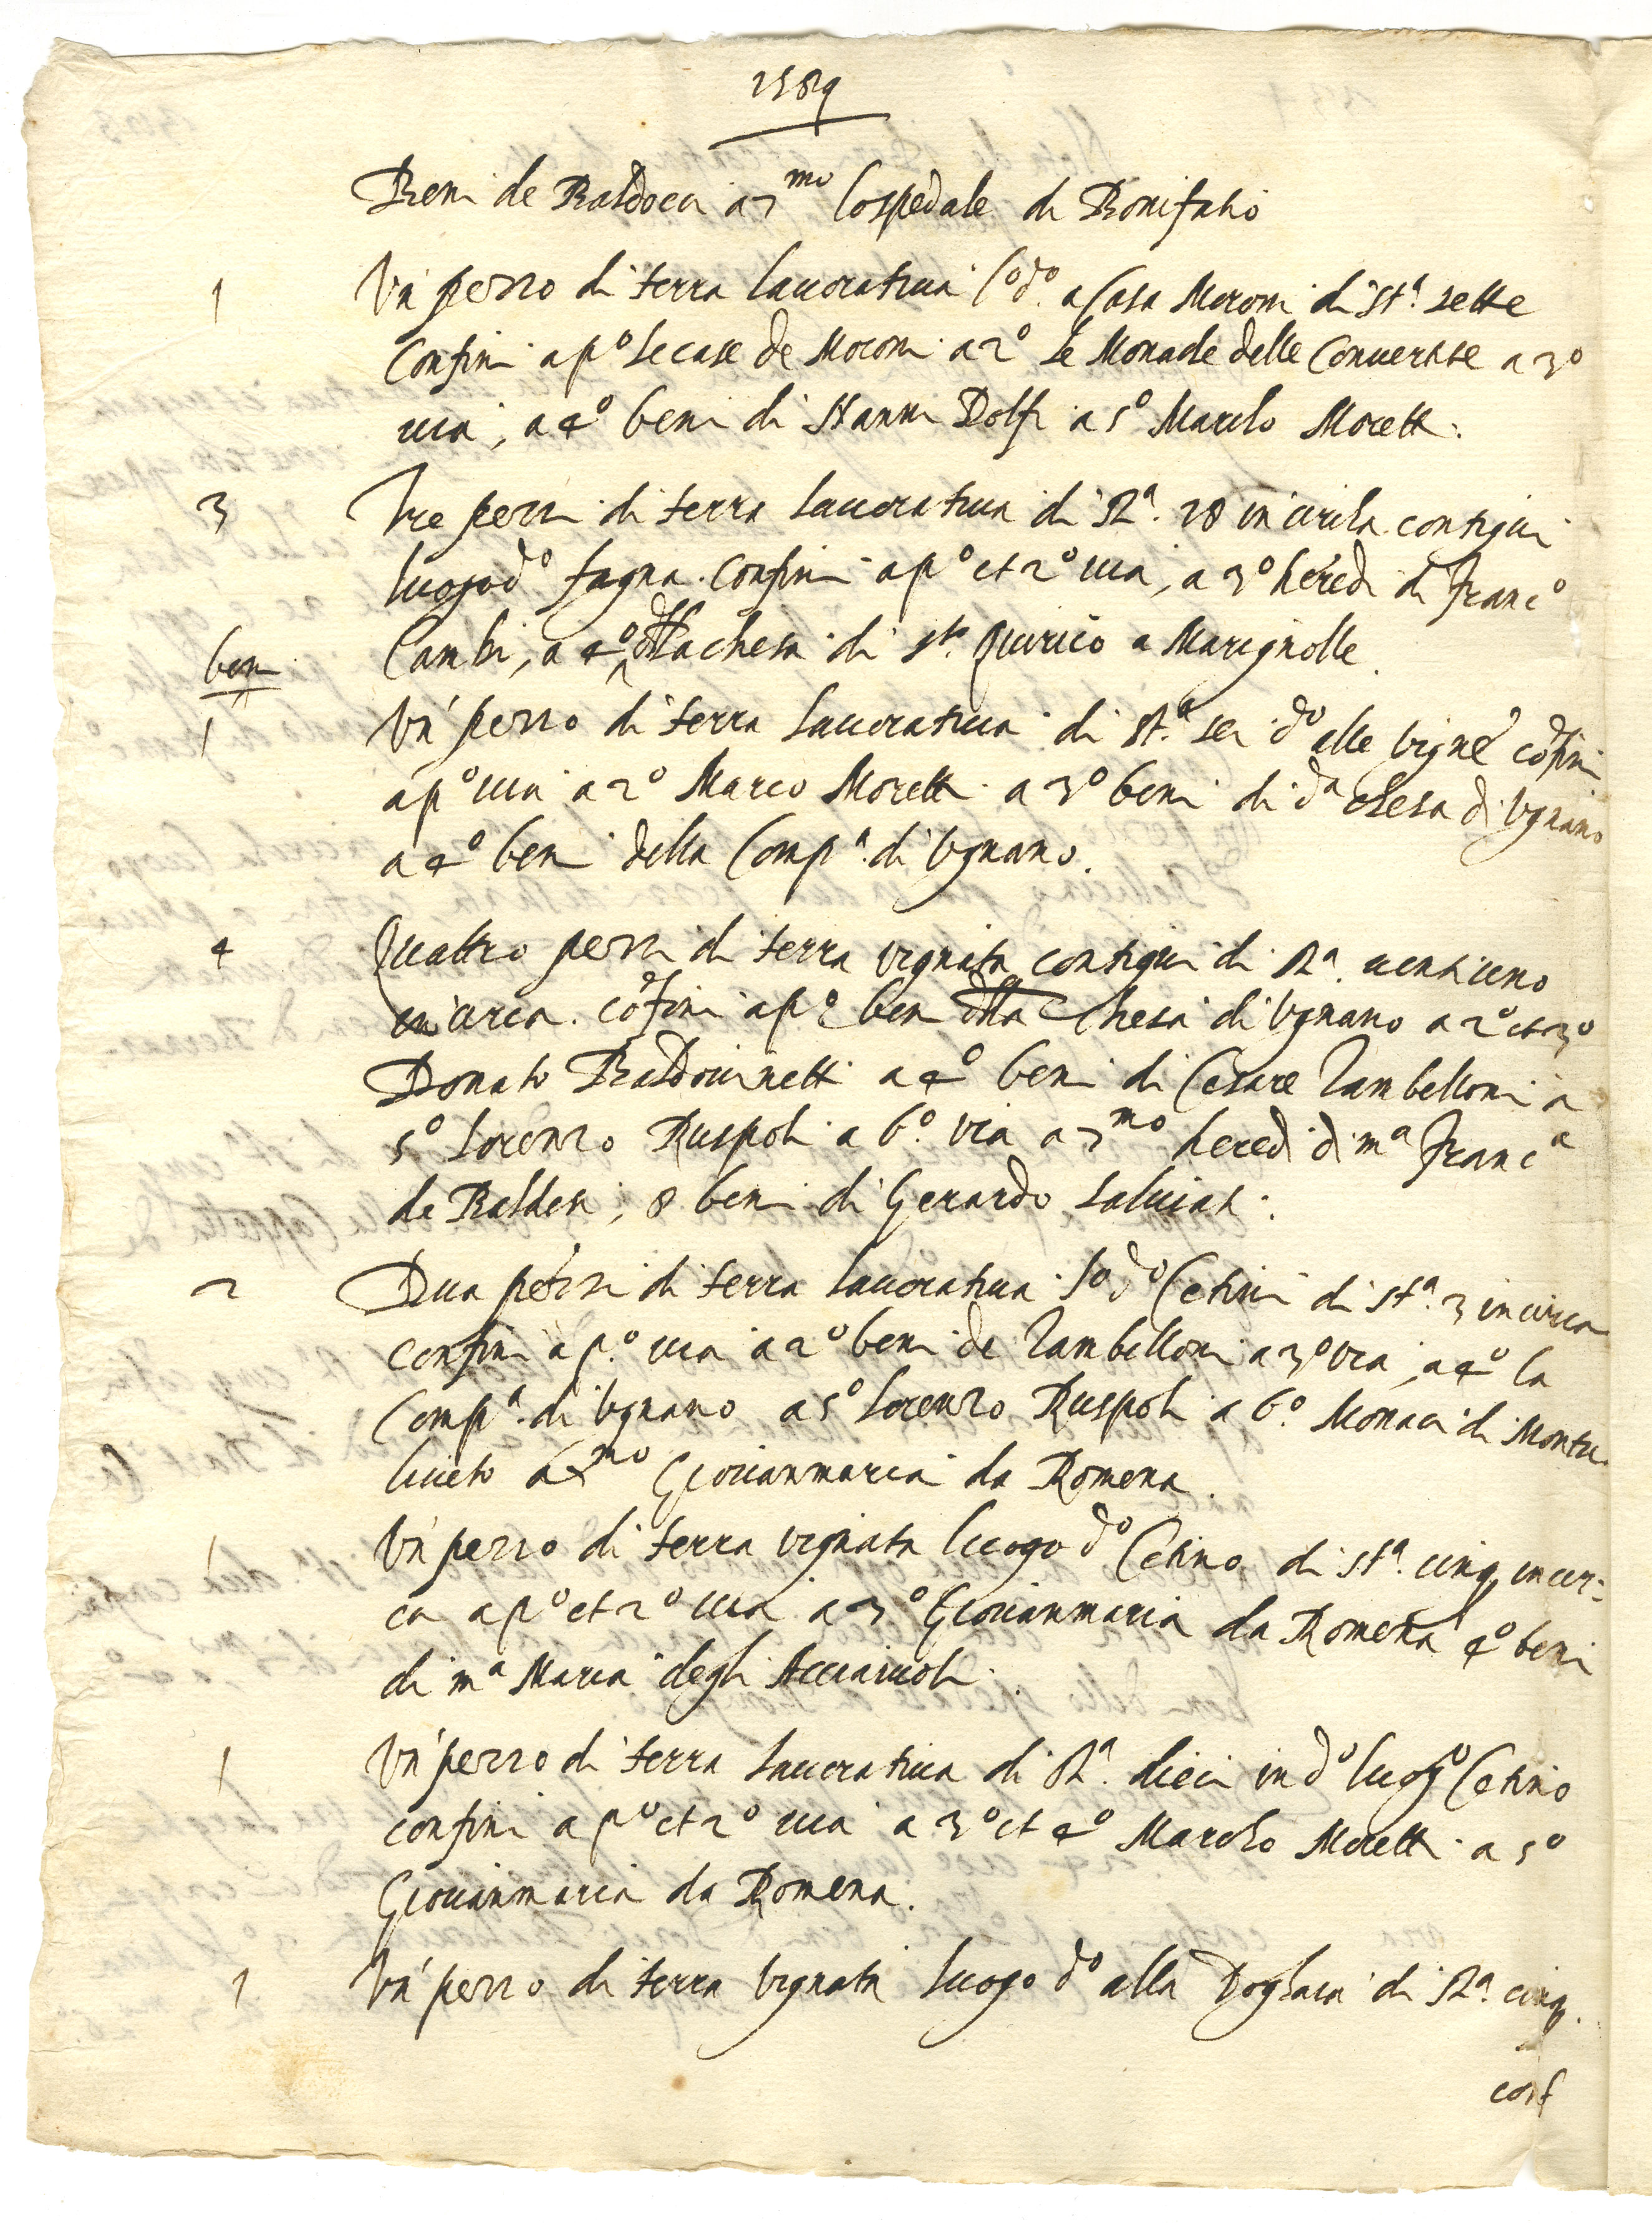 1589
Beni de Baldocci a 7mo lospedale di Bonifatio
1 Un pezzo di terra lauoratiua l.o d.o a Casa Moroni di st.a sette
Confini a p.o le case de Moroni a 2o le Monache delle Conuertite a 3o
uia, a 4o beni di Nanni Dolfi a 5o Marcho Moretti.
3 Tre pezzi di terra lauoratiua di st.a 28 in circha contigui
luogo d.o fagna. Confini a p.o et 2o uia, a 3o heredi di Franc.o
ben. Cambi, a 4o della chiesa di s.to Quirico a Marignolle.
1 Un pezzo di terra lauoratiua di st.a sei d.o alle vigne cofini
a p.o uia a 2o Marco Moretti a 3o beni di d.a chiesa di Ugnano
a 4o beni della Comp.a di Ugnano.
4 Quattro pezzi di terra vignata contigui di st.a uentiuno
in circa. cofini a p.o beni della Chiesa di Ugnano a 2o et 3o
Donato Baldouinetti a 4o beni di Cesare Zambelloni a
5o Lorenzo Ruspoli a 6o. via a 7mo heredi di m.a Franc.a
de Baldesi, 8 beni di Gerardo Saluiati.
2 Dua pezzi di terra lauoratiua l.o d.o Cetini di st.a 3 in circa
confini a p.o uia a 2o beni de Zambelloni a 3o via, a 4o la
Comp.a di Ugnano a 5o Lorenzo Ruspoli a 6o. Monaci di Montu
liueto a 7mo Giouanmaria da Romena.
1 Un pezzo di terra vignata luogo d.o Cetino di st.a cinq. in cir:
ca a p.o et 2o uia a 3o Giouanmaria da Romena 4o beni
di m.a Maria degli Acciaiuoli.
1 Un pezzo di terra lauoratiua di st.a dieci in d.o luogo Cetino
confini a p.o et 2o uia a 3o et 4o Marcho Moretti a 5o
Giouanmaria da Romena.
1 Un pezzo di terra vignata luogo d.o alla Doghaia di st.a cinq.
conf